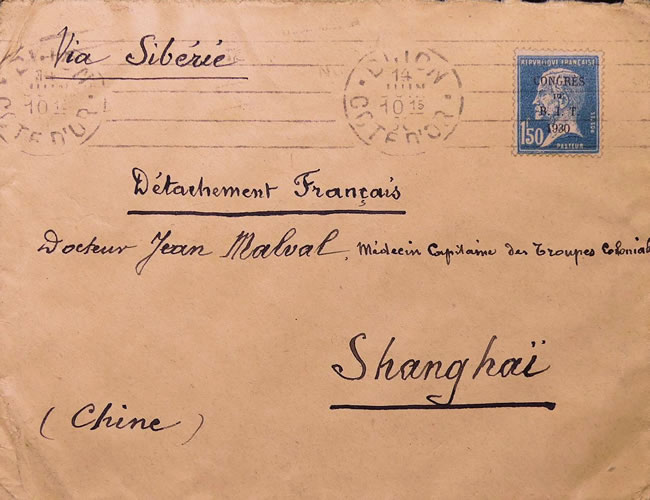 Via Sibérie
DIJON
14
JUIN
10 15
COTE D'OR
DIJON
10
COTE D'OR
REPUBLIQUE FRANÇAISE
CONGRÈS
DU
B. I. T
1930
1F50
PASTEUR
Détachement Français
Docteur Jean Malval, Médecin Capitaine des Troupes Colonial
Shanghaï
(Chine)